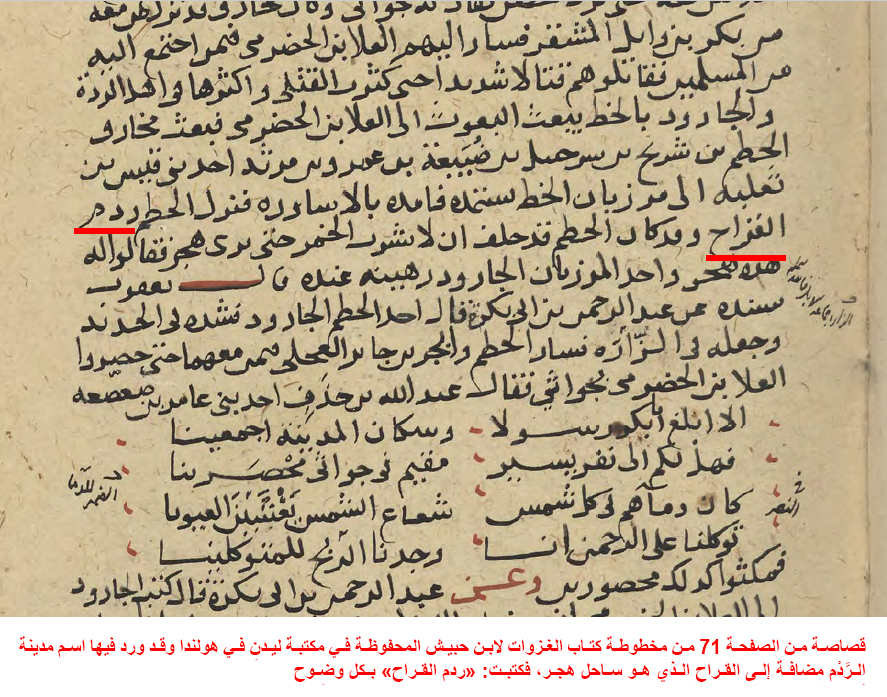 من بكر بن وايل المشقر فسار اليهم العلا بن الحضرمى فيمن اجتمع اليه
من المسلمين فقاتلوهم قتالا شديدا حتى كثرت القتلى واكثرها فى اهل الردة
والجارود بالخط يبعث البعوث الى العلا بن الحضرمى فبعث مخارق
الحطم بن شريح بن سرحبيل بن ضبيعة بن عمرو بن مرثد احد بنى قيس بن
ثعلبه الى مرزبان الخط يستمده فامده بالاساوره فنزل الحطم ردم
القداح وقد كان الحطم قد حلف ان لا يشرب الخمر حتى يرى هجر فقالوا له
هذه هجر واخذ المرزبان الجارود رهينه عنده قال يعقوب
سنده عن عبد الرحمن بن ابى بكرة قال اخذ الحطم الجارود فشده فى الحديد
وجعله فى الزَّارَه فسار الحطم وابجر بن جابر العجلى فيمن معهما حتى حصروا
العلا بن الحضرمى بجواثى فقال عبد الله بن حذف احد بنى عامر بن صعصعه
الا ابلغ ابا بكر رسولا وسكان المدينه اجمعينا
فهل لكم الى نفر يسير مقيم فى جواثى محصرينا
كان دماهم فى كل شمس شعاع الشمس يغشين العيونا
توكلنا على الرحمن انا وجدنا الريح للمتوكلينا
فمكثوا كذلك محصورين وعن عبد الرحمن بن ابى بكرة قال كتب الجارود
قصاصة من الصفحة 71 من مخطوطة كتاب الغزوات لابن حبيش المحفوظة في مكتبة ليدن في هولندا وقد ورد فيها اسم مدينة
الرَّدْم مضافة إلى القراح الذي هو ساحل هجر، فكتبت: «ردم القراح» بكل وضوح